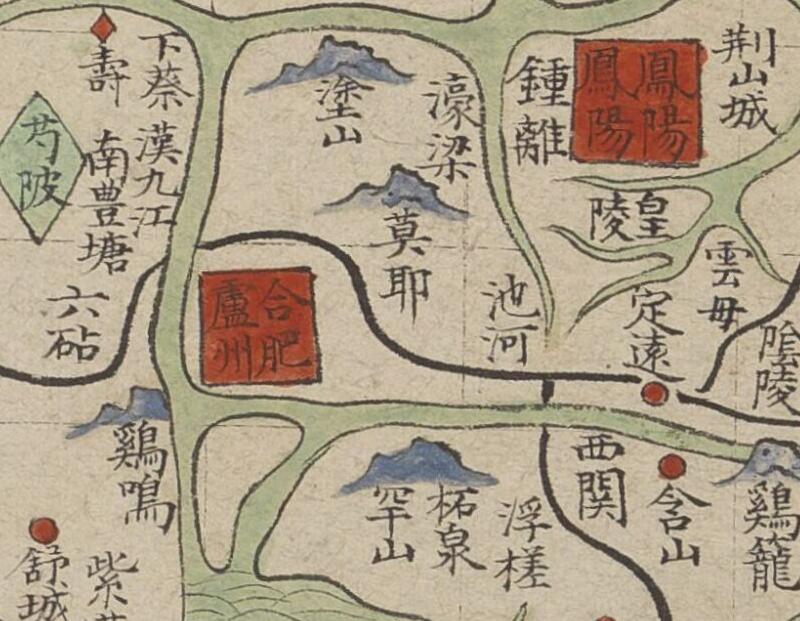 荆山城
鳳陽
鳳陽
鍾離
濠梁
塗山
下蔡
壽
漢九江
南豊塘
芍陂
皇陵
雲母
莫耶
池河
定遠
陰陵
合肥
廬州
六砧
鷄鳴
西関
含山
鷄籠
浮槎
柘泉
罕山
舒城
紫